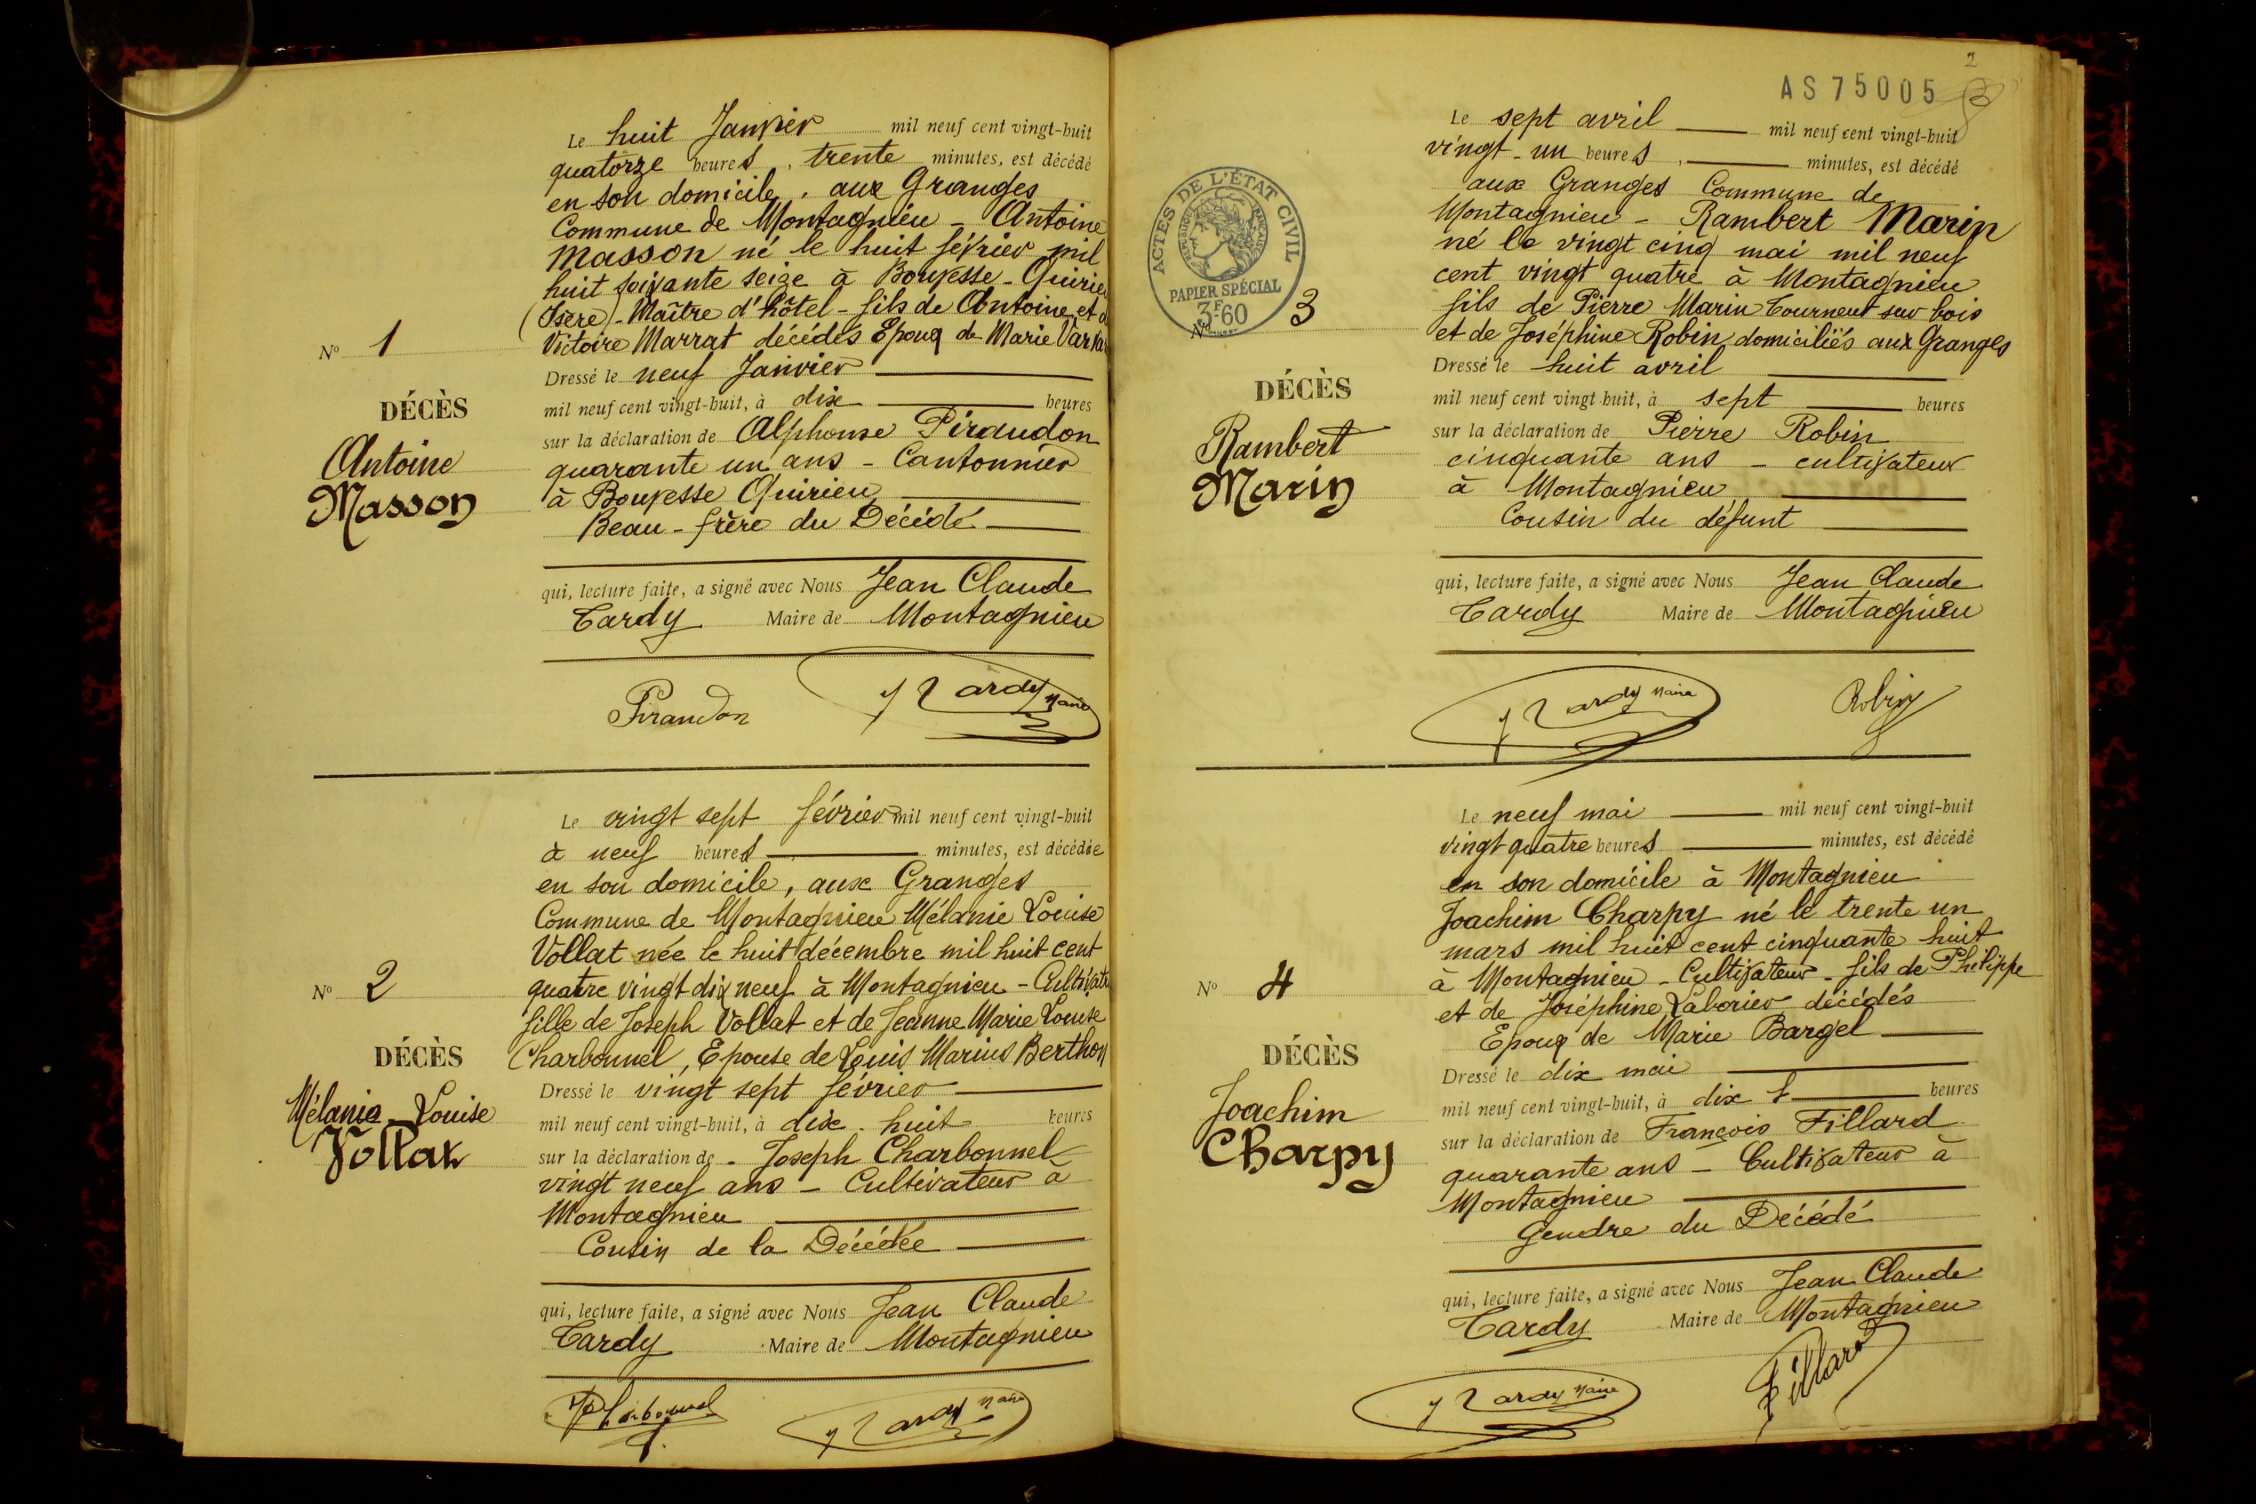 Le huit Janvier mil neuf cent vingt-huit
quatorze heures, trente minutes, est décédé
en son domicile, aux Granges
Commune de Montagnieu - Antoine
Masson né le huit février mil
huit soixante seize à Bouvesse - Quirieu
(Isère) - Maître d'hôtel - fils de Antoine et
Victoire Marrat décédés Epoux de Marie
Nº 1
Dressé le neuf Janvier
DÉCÈS
mil neuf cent vingt-huit, à dix heures
Antoine
Masson
sur la déclaration de Alphonse Piraudon
quarante un ans - Cantonnier
à Bouvesse Quirieu
Beau-frère du Décédé
qui, lecture faite, a signé avec Nous Jean Claude
Tardy Maire de Montagnieu
Piraudon
J Tardy Maire
Le vingt sept février mil neuf cent vingt-huit
à neuf heures minutes, est décédée
en son domicile, aux Granges
Commune de Montagnieu Mélanie Louise
Vollat née le huit décembre mil huit cent
quatre vingt dix neuf à Montagnieu - Cultivat
Nº 2
fille de Joseph Vollat et de Jeanne Marie Louise
Charbonnel, Epouse de Louis Marius Berthon
DÉCÈS
Mélanie - Louise
Vollat
Dressé le vingt sept février
mil neuf cent vingt-huit, à dix-huit heures
sur la déclaration de Joseph Charbonnel
vingt neuf ans - Cultivateur à
Montagnieu
Cousin de la Décédée
qui, lecture faite, a signé avec Nous Jean Claude
Tardy Maire de Montagnieu
Charbonnel
J Tardy Maire
2
AS 75005
ACTES DE L'ÉTAT CIVIL
PAPIER SPÉCIAL
3F60
Le sept avril mil neuf cent vingt-huit
vingt-un heures, minutes, est décédé
aux Granges Commune de
Montagnieu - Rambert Marin
né le vingt cinq mai mil neuf
cent vingt quatre à Montagnieu
fils de Pierre Marin Tourneur sur bois
et de Joséphine Robin domiciliés aux Granges
Nº 3
Dressé le huit avril
DÉCÈS
Rambert
Marin
mil neuf cent vingt-huit, à sept heures
sur la déclaration de Pierre Robin
cinquante ans - cultivateur
à Montagnieu
Cousin du défunt
qui, lecture faite, a signé avec Nous Jean Claude
Tardy Maire de Montagnieu
J Tardy Maire
Robin
Le neuf mai mil neuf cent vingt-huit
vingt quatre heures minutes, est décédé
en son domicile à Montagnieu
Joachim Charpy né le trente un
mars mil huit cent cinquante huit
à Montagnieu - Cultivateur - fils de Philippe
Nº 4
et de Joséphine Laborier décédés
Epoux de Marie Bargel
DÉCÈS
Joachim
Charpy
Dressé le dix mai
mil neuf cent vingt-huit, à dix heures
sur la déclaration de François Fillard
quarante ans - Cultivateur à
Montagnieu
Gendre du Décédé
qui, lecture faite, a signé avec Nous Jean Claude
Tardy Maire de Montagnieu
J Tardy Maire
Fillard